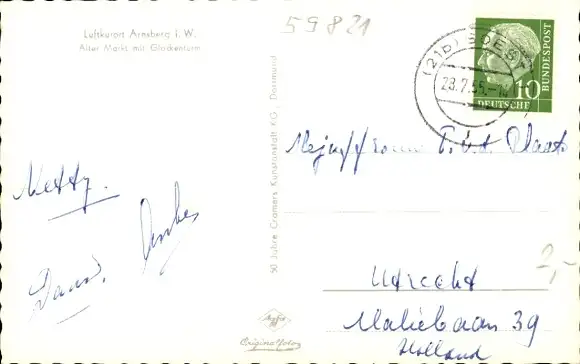 Luftkurort Arnsberg i. W.
Alter Markt mit Glockenturm
59821
(21b) SOEST
23.7.55.-14
10
DEUTSCHE
BUNDESPOST
50 Jahre Cramers Kunstanstalt KG., Dortmund
Mejuffrouw T. v.d. Plaats
Netty.
Utrecht
2,-
Maliebaan 39
Holland
Agfa
Originalfoto